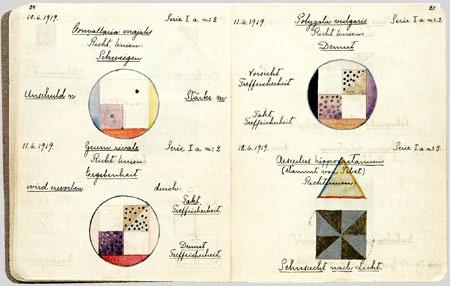 24
10.6.1919. Serie I a m: 2
Convallaria majalis
Richt. linien:
Schweigen
Unschuld n Stärke m
11.6.1919. Geum rivale Serie I a m: 2
Richt. linien:
Ergebenheit
wird erworben durch:
Takt
Treffsicherheit
Demut
Treffsicherheit
11.6.1919. Polygala vulgaris Serie I a m: 2
Richt. linien:
Demut
Vorsicht
Treffsicherheit
Takt
Treffsicherheit
12.6.1919. Serie I a m: 3.
Aesculus hippocastanum
(stammt von Tibet)
Richtlinien:
Sehnsucht nach Licht.